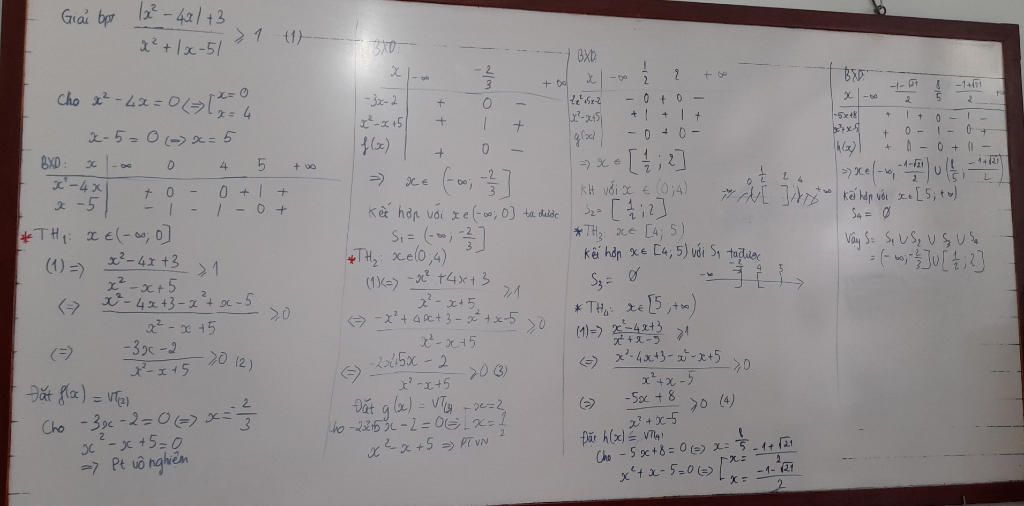 Giải bpt |x² - 4x| + 3 / x² + |x - 5| ≥ 1 (1)
Cho x² - 4x = 0 (=> [ x = 0
x = 4
x - 5 = 0 (=> x = 5
BXD: x | -∞ 0 4 5 +∞
x² - 4x | + 0 - 0 + 1 +
x - 5 | - 1 - 1 - 0 +
* TH₁: x ∈ (-∞; 0]
(1) => x² - 4x + 3 / x² - x + 5 ≥ 1
(=> x² - 4x + 3 - x² + x - 5 / x² - x + 5 ≥ 0
(=> -3x - 2 / x² - x + 5 ≥ 0 (2)
Đặt f(x) = VT(2)
Cho -3x - 2 = 0 (=> x = -2/3
x² - x + 5 = 0
=> Pt vô nghiệm
BXD:
x | -∞ -2/3 +∞
-3x - 2 | + 0 -
x² - x + 5 | + 1 +
f(x) | + 0 -
=> x ∈ (-∞; -2/3]
Kết hợp với x ∈ (-∞; 0] ta được
S₁ = (-∞; -2/3]
* TH₂: x ∈ (0, 4)
(1) (=> -x² + 4x + 3 / x² - x + 5 ≥ 1
(=> -x² + 4x + 3 - x² + x - 5 / x² - x + 5 ≥ 0
(=> -2x² + 5x - 2 / x² - x + 5 ≥ 0 (3)
Đặt g(x) = VT(3)
Cho -2x² + 5x - 2 = 0 (=> [ x = 2
x = 1/2
x² - x + 5 => PTVN
BXD:
x | -∞ 1/2 2 +∞
-2x² + 5x - 2 | - 0 + 0 -
x² - x + 5 | + 1 + 1 +
g(x) | - 0 + 0 -
=> x ∈ [1/2; 2]
KH với x ∈ (0; 4) 0 1/2 2 4 +∞
S₂ = [1/2; 2]
* TH₃: x ∈ [4; 5)
Kết hợp x ∈ [4; 5) với S₁ ta được
S₃ = ∅ -∞ -2/3 4 5
* TH₄: x ∈ [5, +∞)
(1) => x² - 4x + 3 / x² + x - 5 ≥ 1
(=> x² - 4x + 3 - x² - x + 5 / x² + x - 5 ≥ 0
(=> -5x + 8 / x² + x - 5 ≥ 0 (4)
Đặt h(x) = VT(4)
Cho -5x + 8 = 0 (=> x = 8/5
x² + x - 5 = 0 (=> [ x = -1 + √21 / 2
x = -1 - √21 / 2
BXD:
x | -∞ -1-√21/2 8/5 -1+√21/2 +∞
-5x + 8 | + 1 + 0 - 1 -
x² + x - 5 | + 0 - 1 - 0 +
h(x) | + 0 - 0 + 11 -
=> x ∈ (-∞; -1-√21/2) ∪ (8/5; -1+√21/2)
Kết hợp với x ∈ [5, +∞)
S₄ = ∅
Vậy S = S₁ ∪ S₂ ∪ S₃ ∪ S₄
= (-∞; -2/3] ∪ [1/2; 2]